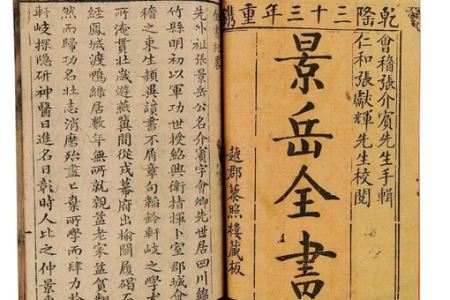 乾隆三十三年重鐫
會稽張介賓先生手輯
仁和張獻輝先生校閱
景岳全書
越郡藜照樓藏板
先外祖張景岳公名介賓字會卿先世居四川綿
竹縣明初以軍功世授紹興衛指揮卜室郡城會
稽之東生穎異讀書不屑章句韜鈐軒岐之學尤
所淹貫壯歲遊燕冀間從戎幕府出榆關履碣石
經鳳城渡鴨綠居數年無所就親益老家益貧翻
然而歸功名壯志消磨殆盡〻棄所學而肆力於
軒岐探隱研神醫日進名日彰時人比之仲景東